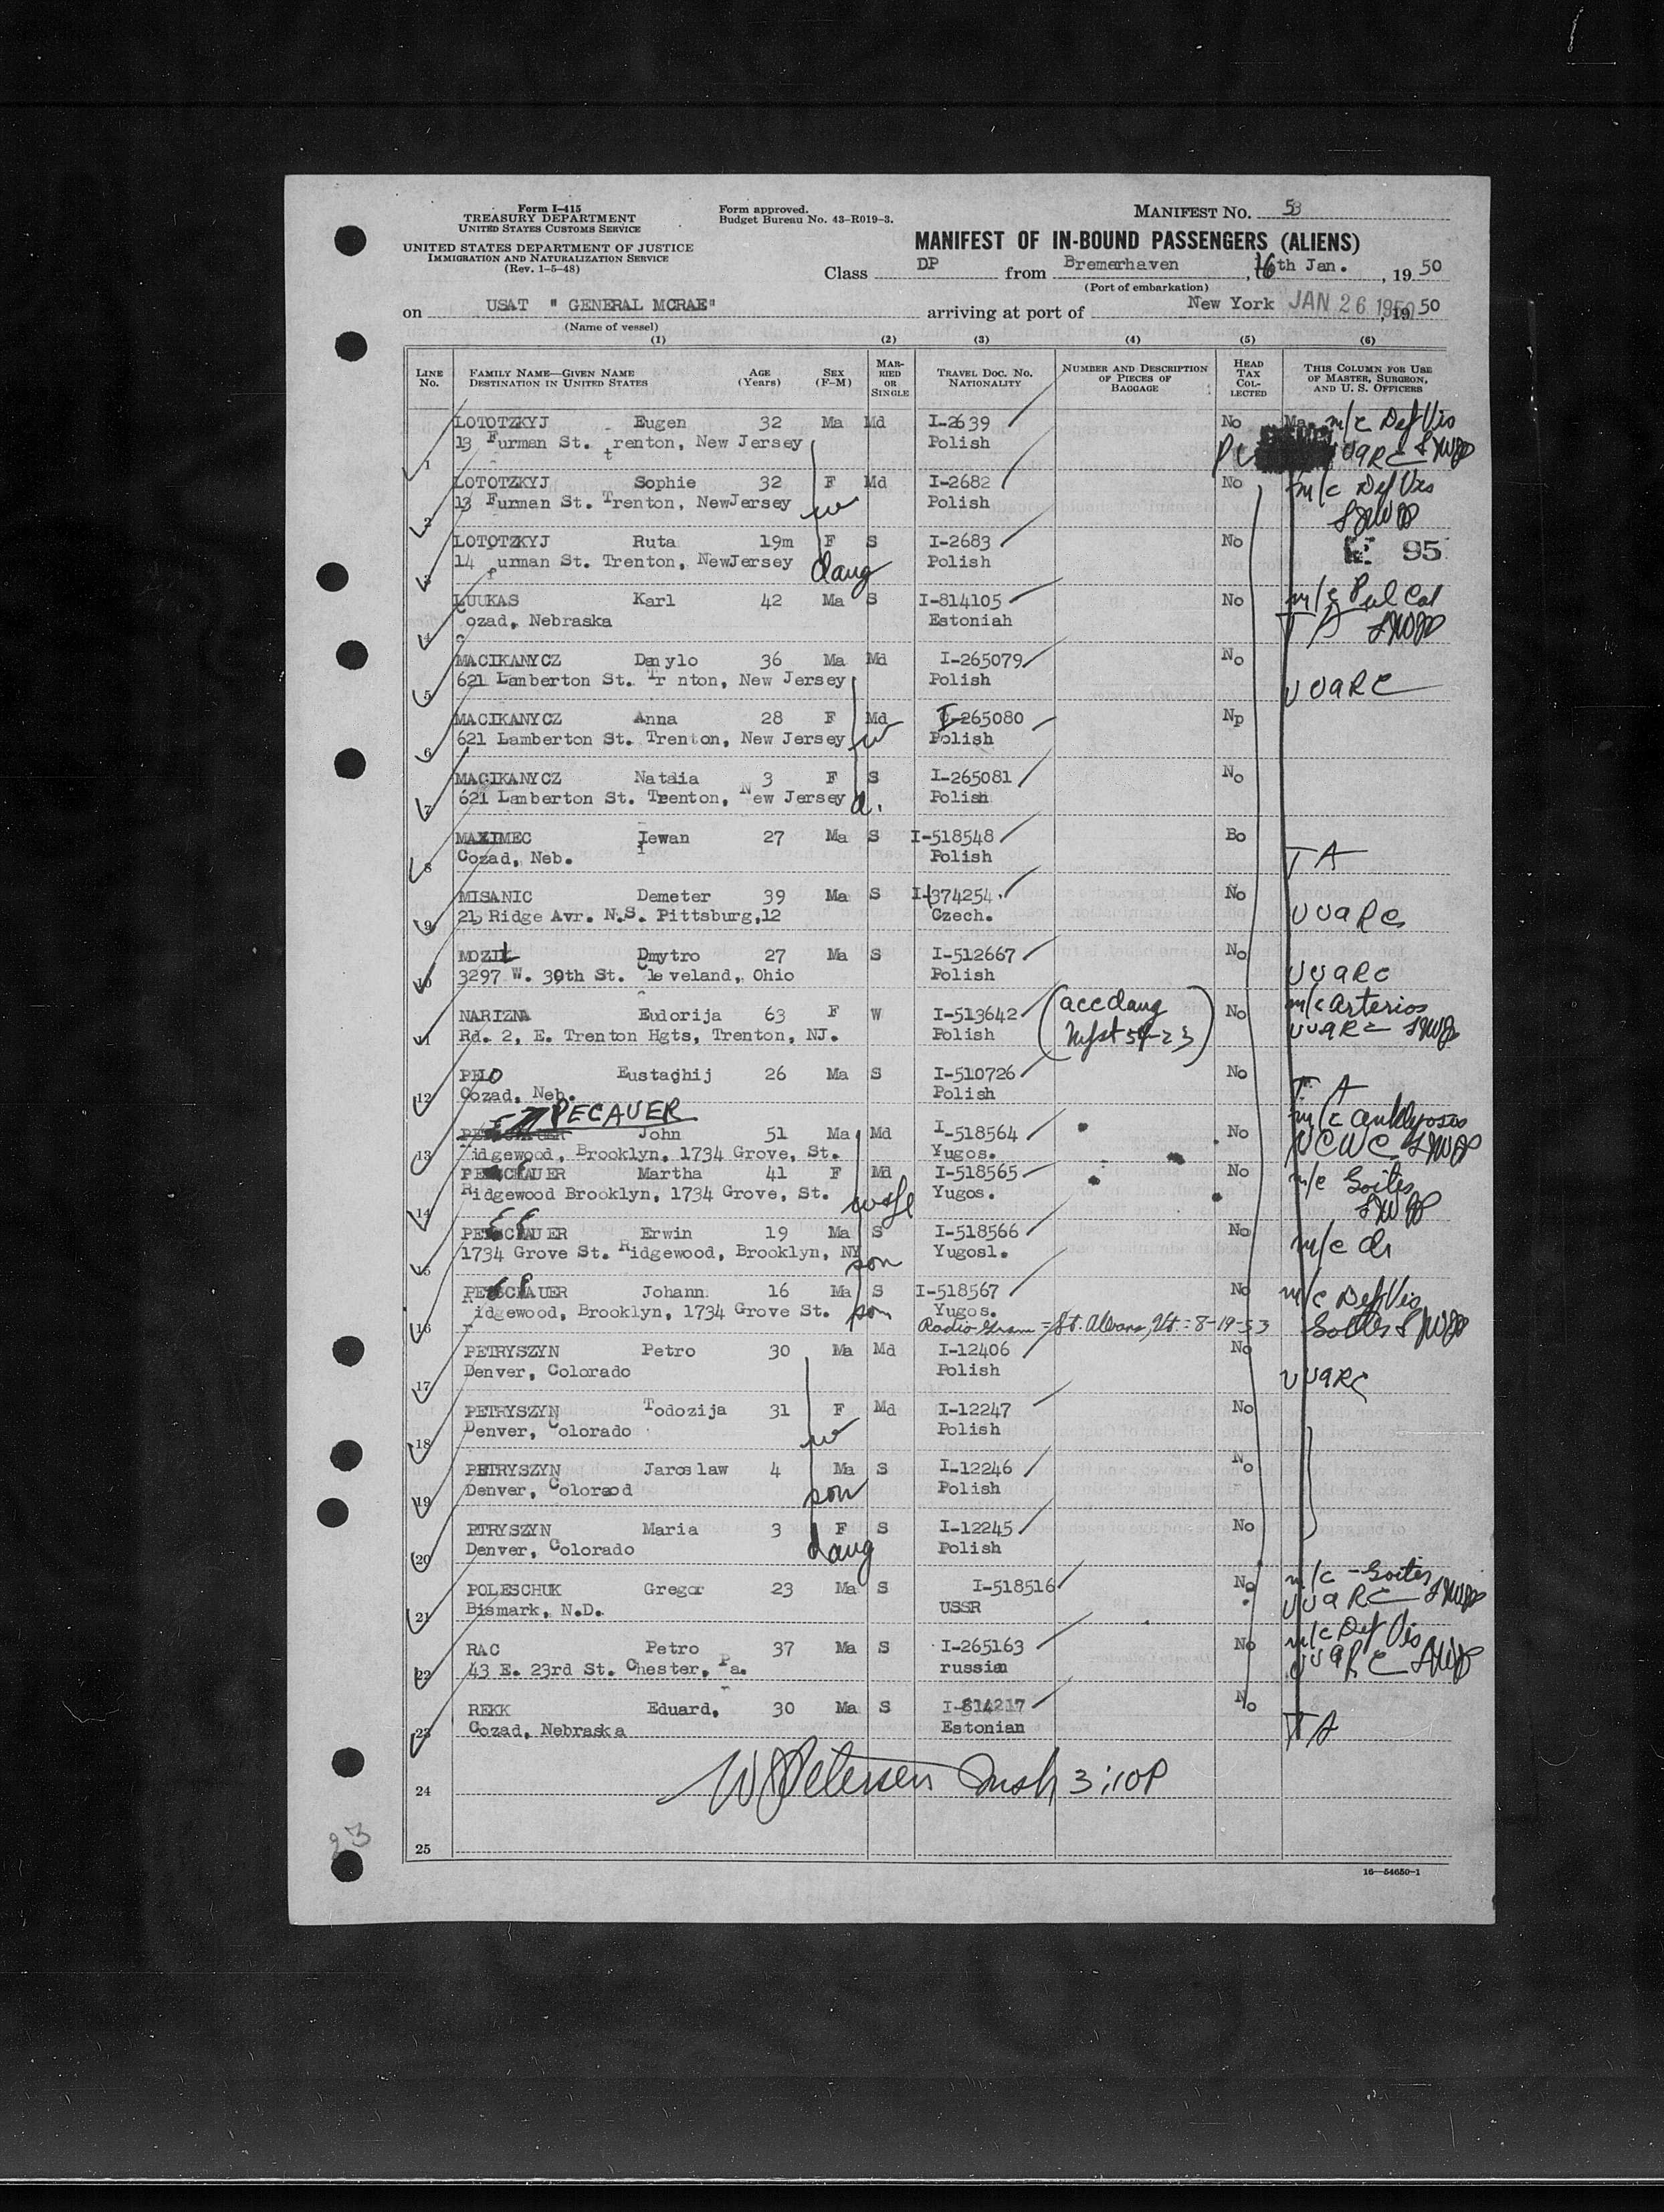 Form I-415
TREASURY DEPARTMENT
UNITED STATES CUSTOMS SERVICE
UNITED STATES DEPARTMENT OF JUSTICE
IMMIGRATION AND NATURALIZATION SERVICE
(Rev. 1-5-48)
Form approved.
Budget Bureau No. 43-R019-3.
MANIFEST NO. 53
MANIFEST OF IN-BOUND PASSENGERS (ALIENS)
Class DP from Bremerhaven, 16th Jan., 1950
(Port of embarkation)
on USAT " GENERAL MCRAE" arriving at port of New York JAN 26 1950, 1950
(Name of vessel)
(1) (2) (3) (4) (5) (6)
LINE No. FAMILY NAME—GIVEN NAME DESTINATION IN UNITED STATES AGE (Years) SEX (F-M) MARRIED OR SINGLE TRAVEL DOC. NO. NATIONALITY NUMBER AND DESCRIPTION OF PIECES OF BAGGAGE HEAD TAX COLLECTED THIS COLUMN FOR USE OF MASTER, SURGEON, AND U. S. OFFICERS
1 LOTOTZKYJ Eugen 32 Ma Md I-2639 No m/c Def Vis
13 Furman St. trenton, New Jersey Polish UUARC
2 LOTOTZKYJ Sophie 32 F Md I-2682 No m/c Def Vis
13 Furman St. Trenton, NewJersey w Polish
3 LOTOTZKYJ Ruta 19m F S I-2683 No 95
14 furman St. Trenton, NewJersey daug Polish
4 LUUKAS Karl 42 Ma S I-814105 No m/c Pul Cal
Cozad, Nebraska Estoniah TA
5 MACIKANYCZ Danylo 36 Ma Md I-265079 No
621 Lamberton St. Tr nton, New Jersey Polish UUARC
6 MACIKANYCZ Anna 28 F Md I-265080 Np
621 Lamberton St. Trenton, New Jersey w Polish
7 MACIKANYCZ Natalia 3 F S I-265081 No
621 Lamberton St. Trenton, New Jersey d. Polish
8 MAXIMEC Iewan 27 Ma S I-518548 Bo
Cozad, Neb. Polish TA
9 MISANIC Demeter 39 Ma S I-374254 No
215 Ridge Avr. N.S. Pittsburg,12 Czech. UUARC
10 MOZIL Dmytro 27 Ma S I-512667 No
3297 W. 30th St. Cleveland, Ohio Polish UUARC
11 NARIZNA Eudorija 63 F W I-513642 (acc daug No m/c arterios
Rd. 2, E. Trenton Hgts, Trenton, NJ. Polish Mfst 54-23) UUARC
12 PELO Eustaghij 26 Ma S I-510726 No
Cozad, Neb. Polish TA
PECAUER
13 John 51 Ma Md I-518564 No m/c
Ridgewood, Brooklyn, 1734 Grove, St. Yugos. NCWC
14 Martha 41 F Md I-518565 No m/c Goiter
Ridgewood Brooklyn, 1734 Grove, St. wife Yugos.
15 Erwin 19 Ma S I-518566 No
1734 Grove St. Ridgewood, Brooklyn, NY son Yugosl. m/c
16 Johann 16 Ma S I-518567 No m/c Def Vis
Ridgewood, Brooklyn, 1734 Grove St. son Yugos. Goiter
Radio Gram = St. Albans, Vt. : 8-19-53
17 PETRYSZYN Petro 30 Ma Md I-12406 No
Denver, Colorado Polish UUARC
18 PETRYSZYN Todozija 31 F Md I-12247 No
Denver, Colorado w Polish
19 PETRYSZYN Jaroslaw 4 Ma S I-12246 No
Denver, Coloraod son Polish
20 PTRYSZYN Maria 3 F S I-12245 No
Denver, Colorado daug Polish
21 POLESCHUK Gregor 23 Ma S I-518516 No m/c - Goiter
Bismark, N.D. USSR UUARC
22 RAC Petro 37 Ma S I-265163 No m/c Def Vis
43 E. 23rd St. Chester, Pa. russian UUARC
23 REKK Eduard, 30 Ma S I-814217 No
Cozad, Nebraska Estonian TA
24 W Petersen Insp 3:10P
25
23
16—54650-1